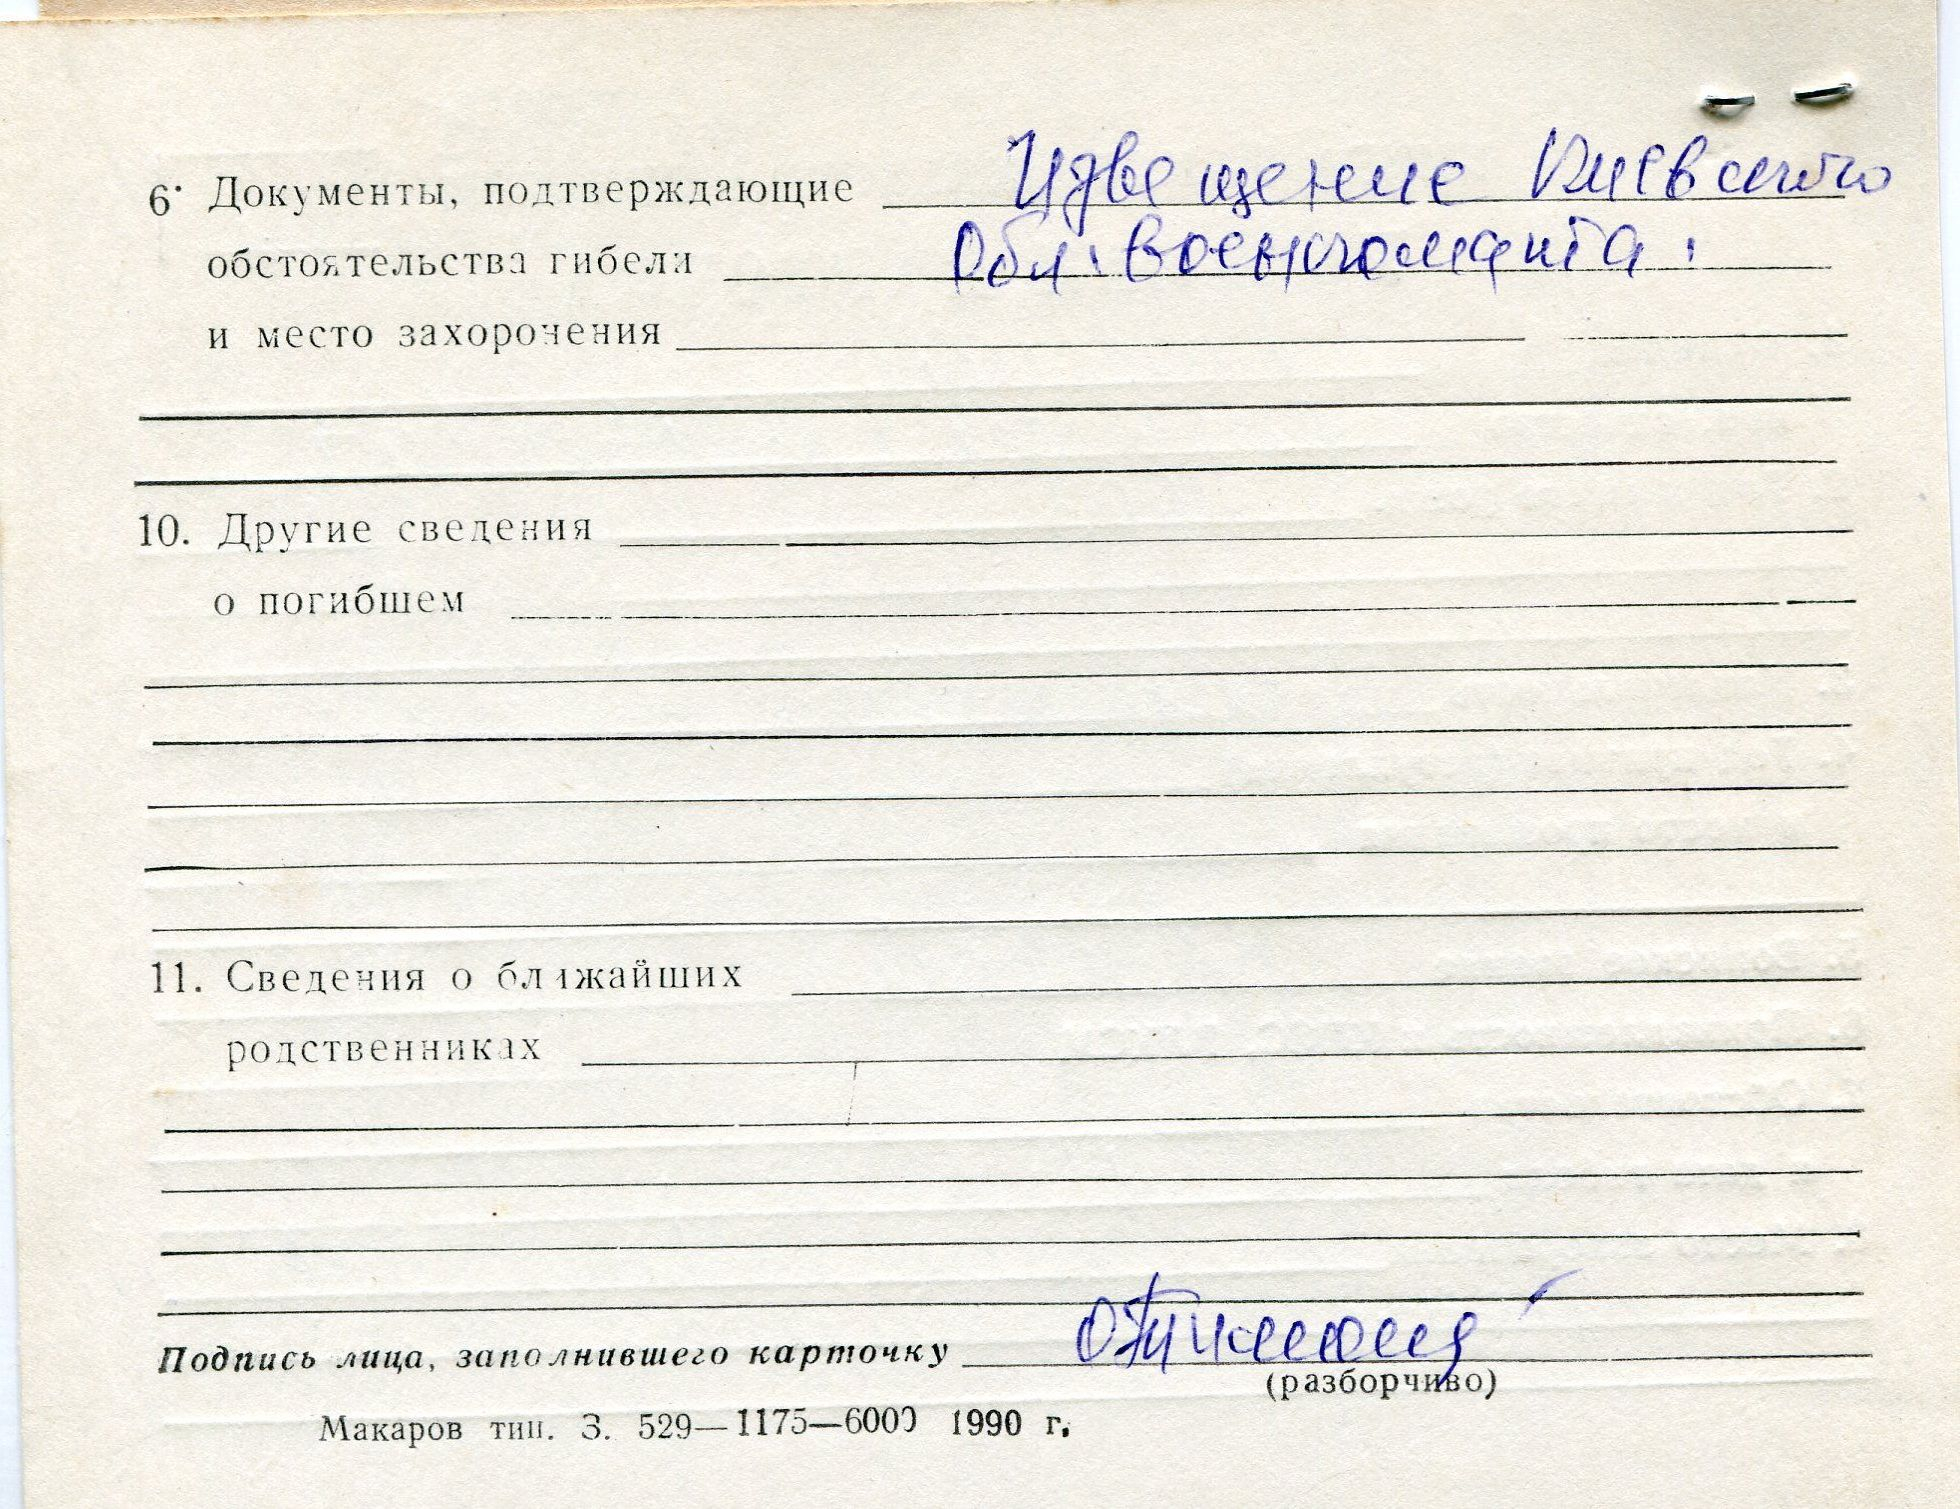 6. Документы, подтверждающие Извещение Киевского
обстоятельства гибели Обл. военкомата.
и место захоронения
10. Другие сведения
о погибшем
11. Сведения о ближайших
родственниках
Подпись лица, заполнившего карточку
(разборчиво)
Макаров тип. З. 529—1175—6000 1990 г.